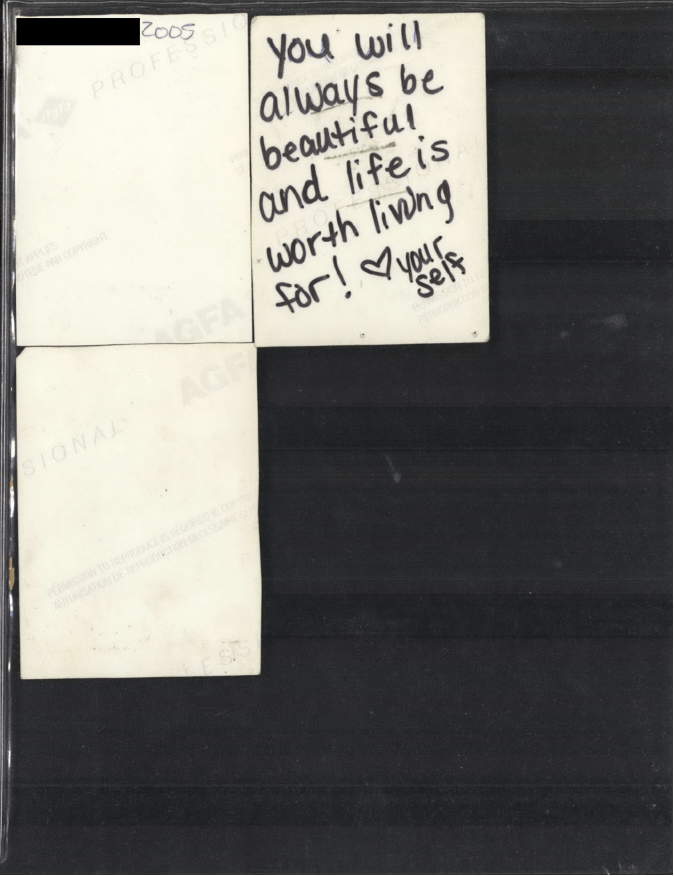 2005
PROFESSIO
AGFA
you will
always be
beautiful
and life is
worth living
for! ♡ your
self
AGFA
SIONAL
PERMISSION TO REPRODUCE IS REQUIRED
AUTORISATION DE REPRODUCTION NECESSAIRE